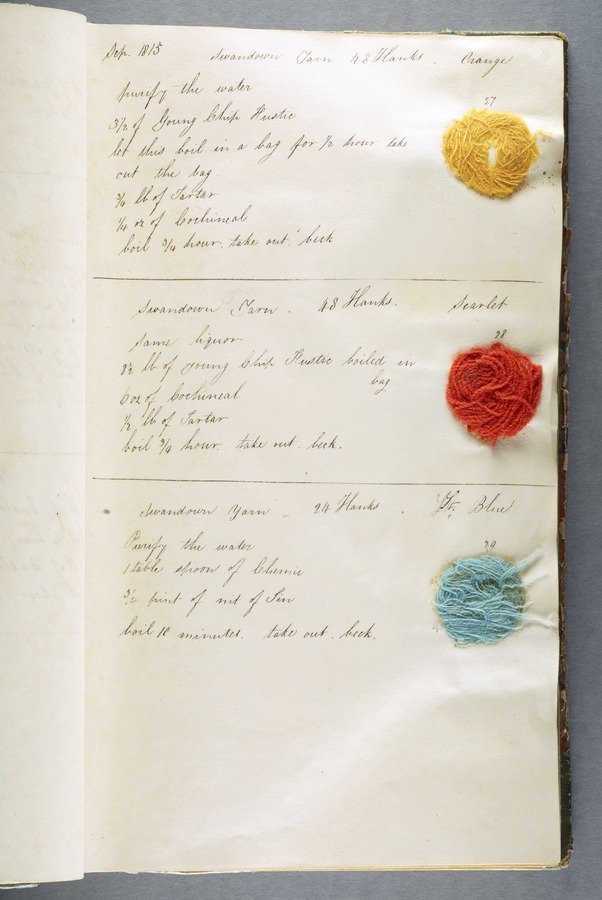 Sep. 1815 Swandown Yarn 48 Hanks. Orange
27
purify the water
3½ of Young Chip Fustic
let this boil in a bag for ½ hour take
out the bag
¾ lb of Tartar
¼ oz of Cochineal
boil ¾ hour. take out. beck
Swandown Yarn. 48 Hanks. Scarlet
28
same liquor
lb of young Chip Fustic boiled in
bag
6 oz of Cochineal
½ lb of Tartar
boil ¾ hour. take out. beck.
Swandown Yarn - 24 Hanks. Lt. Blue
29
Purify the water
1 table spoon of Chemic
pint of nit of Tin
boil 10 minutes. take out. beck.